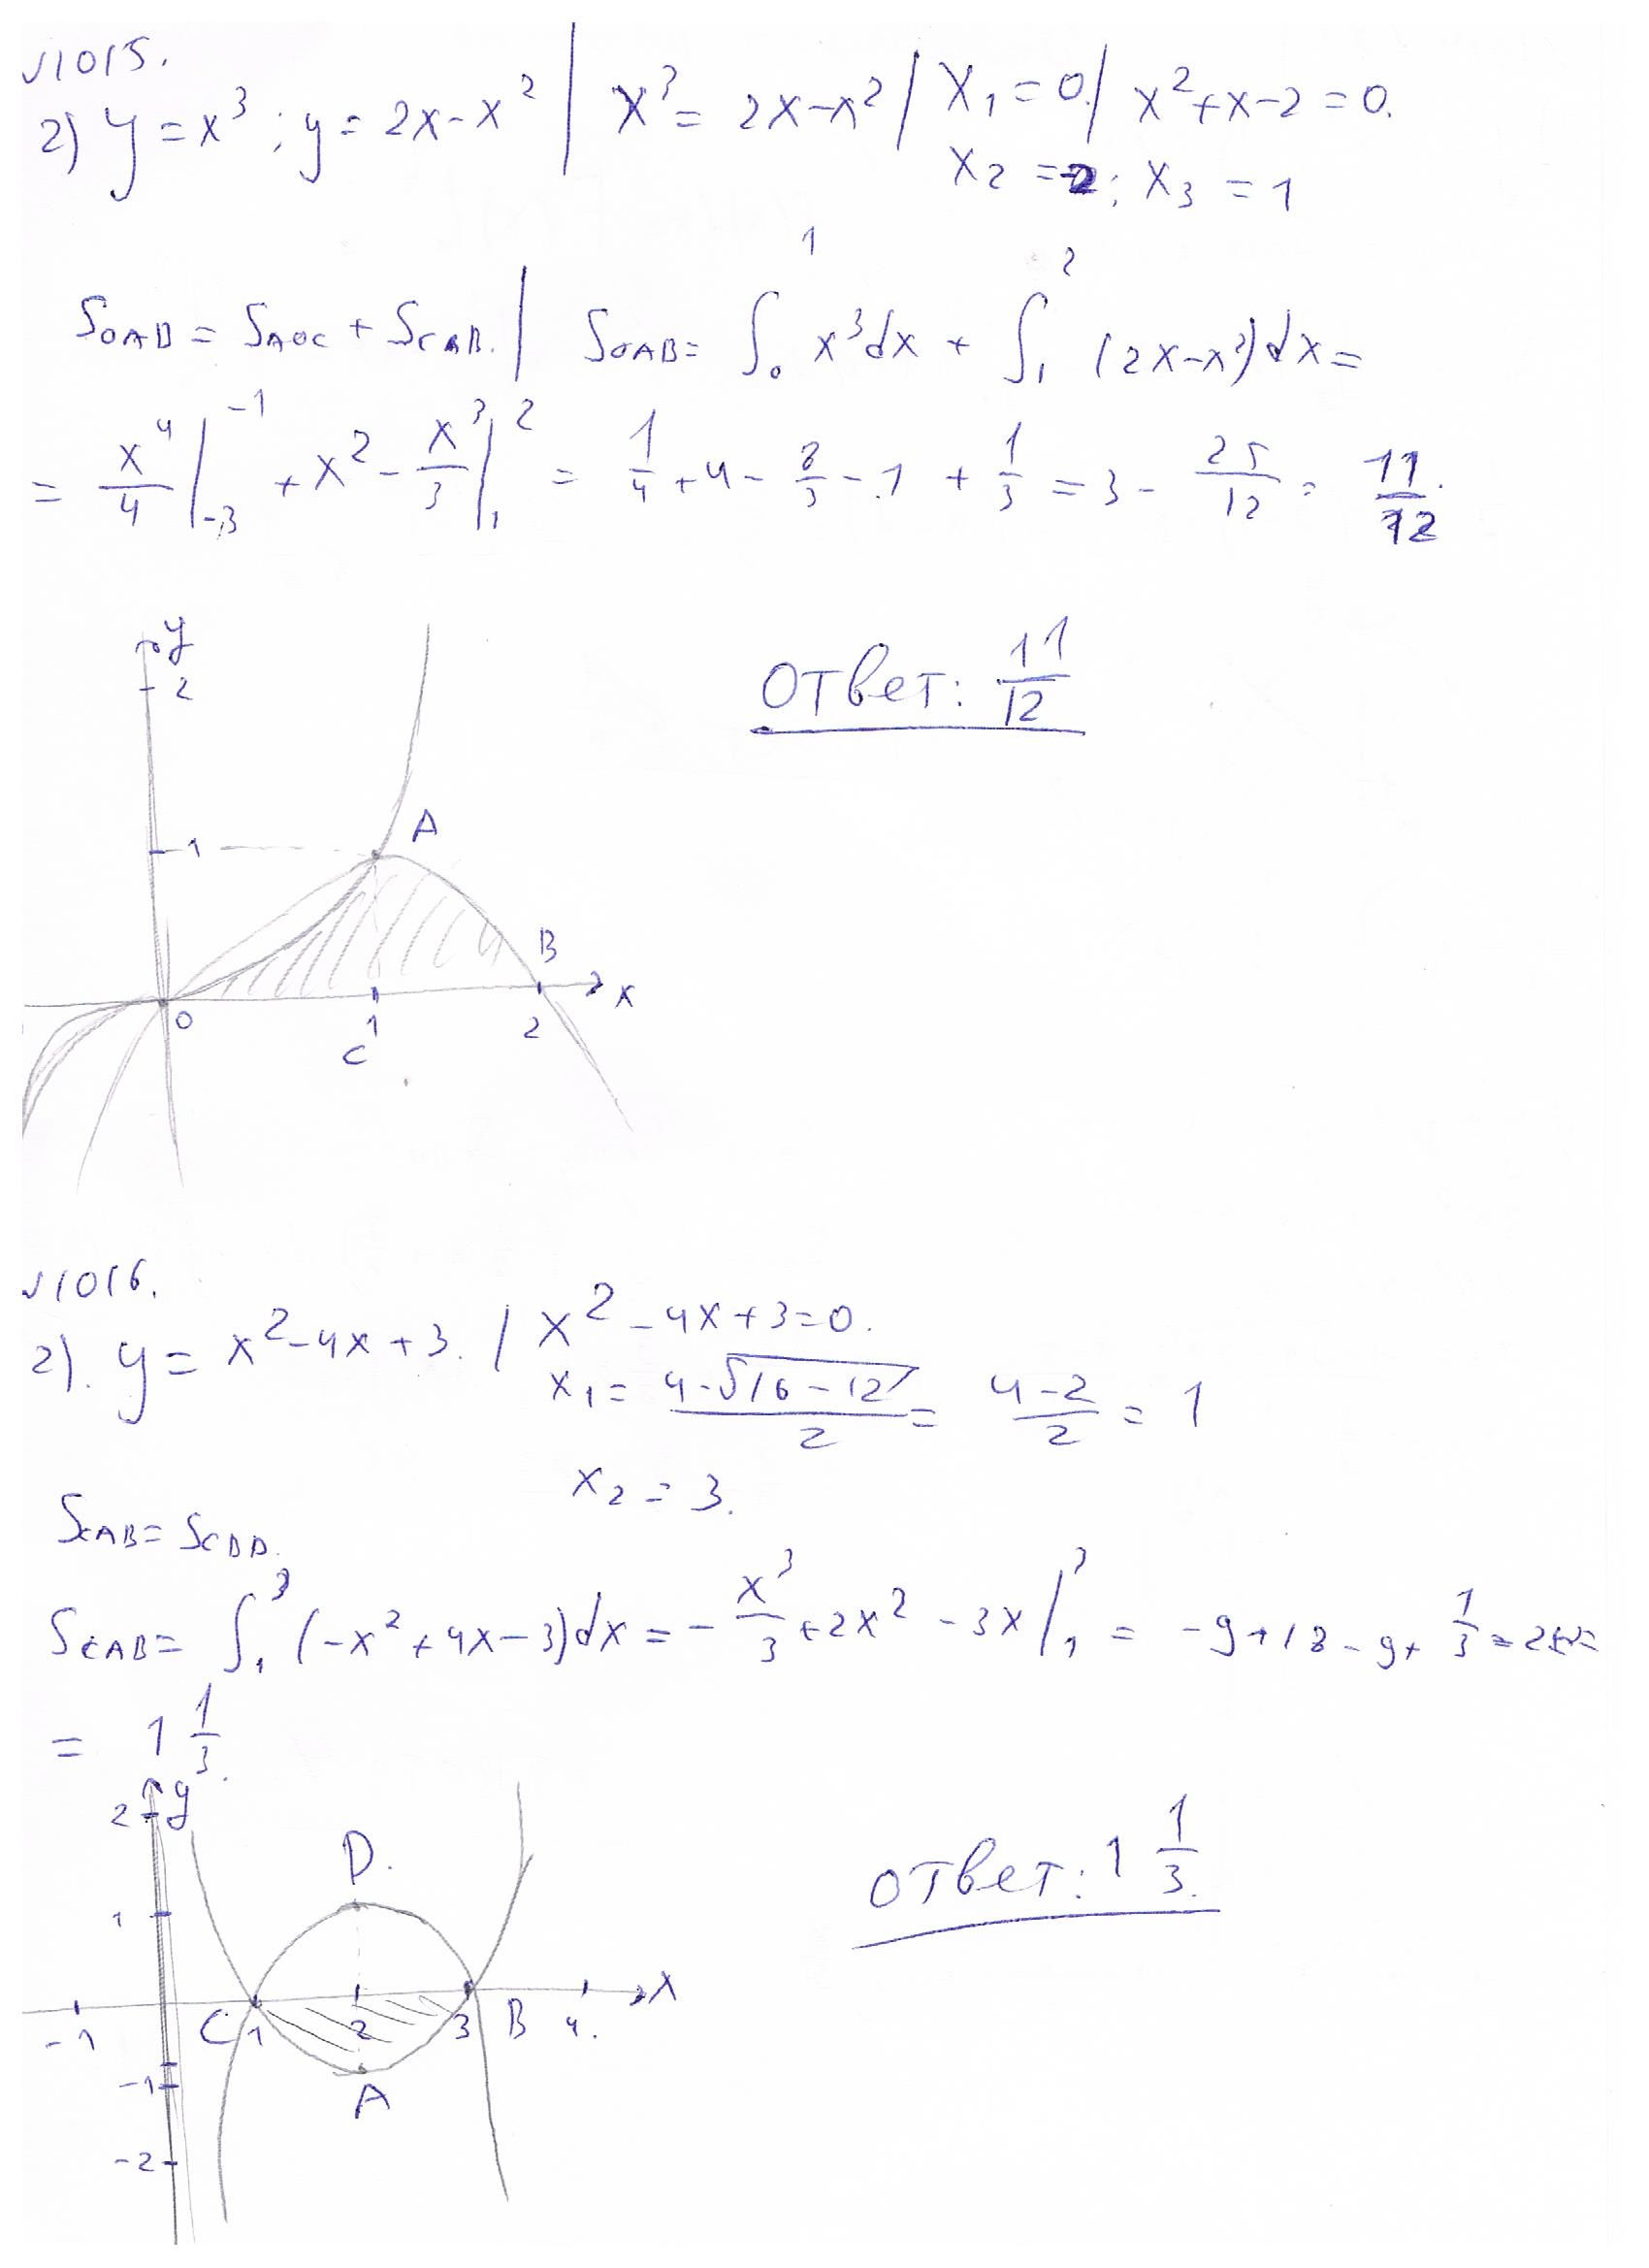 √1015.
2) y = x³ ; y = 2x - x² | x³ = 2x - x² / x₁ = 0. / x² + x - 2 = 0.
x₂ = -2; x₃ = 1
S_OAB = S_AOC + S_CAB. | S_OAB = ∫₀¹ x³dx + ∫₁² (2x - x²)dx =
= x⁴/4 |₋₃⁻¹ + x² - x³/3 |₁² = 1/4 + 4 - 8/3 - 1 + 1/3 = 3 - 25/12 = 11/12.
y
2
Ответ: 11/12
A
1
B
x
0 1 2
C
√1016.
2). y = x² - 4x + 3. / x² - 4x + 3 = 0.
x₁ = (4 - √(16 - 12))/2 = (4 - 2)/2 = 1
x₂ = 3.
S_CAB = S_CDB.
S_CAB = ∫₁³ (-x² + 4x - 3)dx = - x³/3 + 2x² - 3x |₁³ = -9 + 18 - 9 + 1/3 =
= 1 1/3.
y
2
D.
1
Ответ: 1 1/3.
x
-1 C 1 2 3 B 4.
-1
A
-2